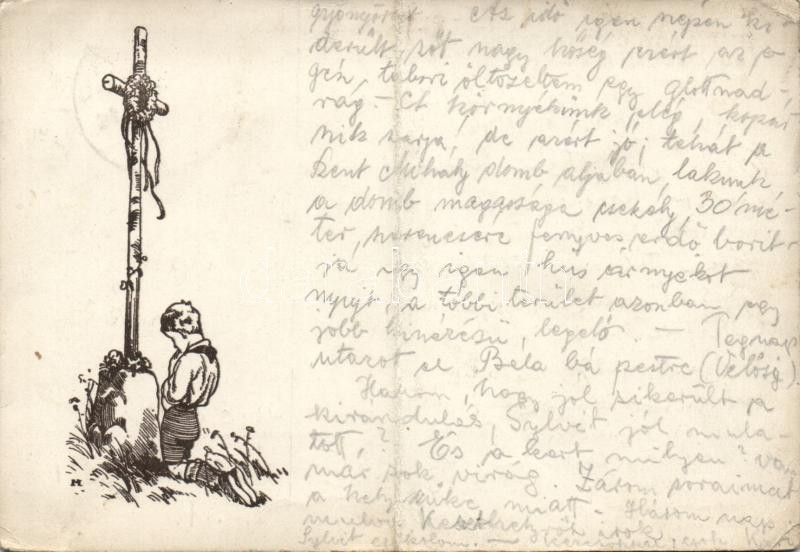 gyönyörű. Az idő igen szépen ki
derült, sőt nagy hőség
tábori öltözetem egy glottnad-
rág. – A környékünk elég kopár
de azért jó; tehát a
Szent Mihály domb aljában lakunk,
a domb magassága csekély, 30 mé-
ter, szerencsére fenyves erdő borit-
ja így igen hűs árnyékot
nyújt, a többi terület azonban egy
jobb kinézésű legelő. – Tegnap
utazott el Bela bá pestre
hogy jól sikerült a
kirándulás, Sylvit jól mula-
tott? És a kert milyen? van
már sok virág. Zárom soraimat
a hely szűke miatt. Három nap
mulva irok
Sylvit csókolom. –
M